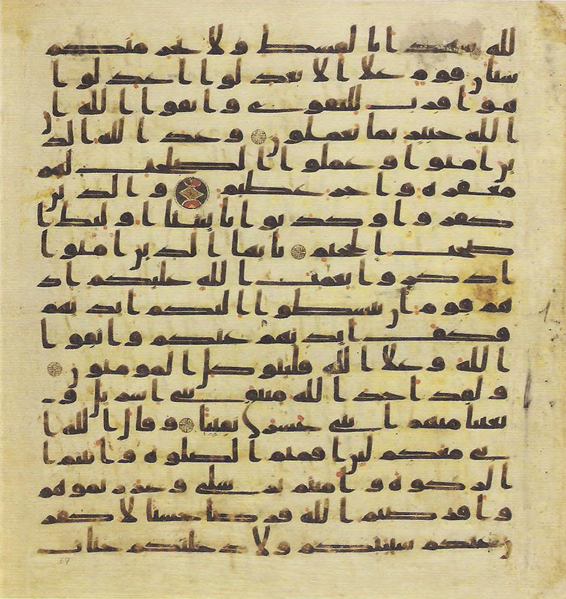 لله شهدا بالقسط ولا يجرمنكم
شنان قوم علا الا تعدلوا اعدلوا
هو اقرب للتقوى واتقوا الله ان
الله خبير بما تعملون وعد الله الذ
ين امنوا وعملوا الصلحت لهم
مغفره واجر عظيم والذين
كفروا وكذبوا بايتنا اوليك ا
صحب الجحيم يايها الذين امنوا
اذكروا نعمت الله عليكم اذ
هم قوم ان يبسطوا اليكم ايديهم
فكف ايديهم عنكم واتقوا
الله وعلا الله فليتوكل المومنون
ولقد اخذ الله ميثق بني اسريل و
بعثنا منهم اثني عشر نقيبا وقال الله ا
ني معكم لين اقمتم الصلوه واتيتم ا
لزكوه وامنتم برسلي وعزرتموهم
واقرضتم الله قرضا حسنا لاكفر
ن عنكم سييتكم ولادخلنكم جنات